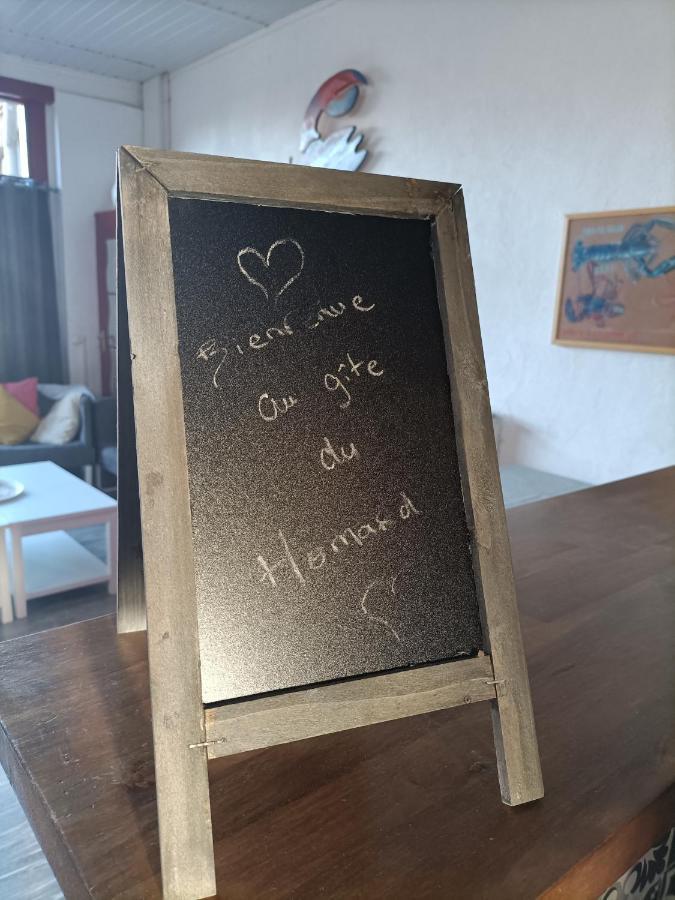 Bienvenue
au gîte
du
Homard